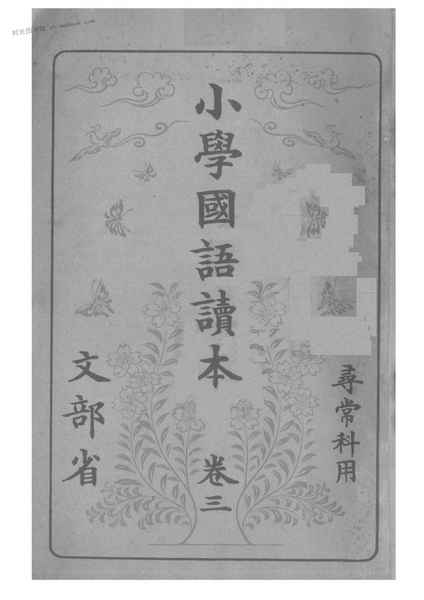 尋常科用
小學國語讀本
卷三
文部省